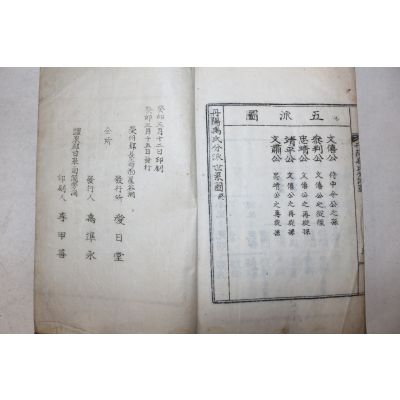 五派圖
文僖公 侍中公之孫
叅判公 文僖公之從孫
忠靖公 文僖公之再從孫
靖平公 文僖公之再從孫
文肅公 忠靖公之再從孫
丹陽禹氏分派世系圖
癸卯三月十二日印刷
癸卯三月十五日發行
發行所 愛日堂
仝所
發行人 禹準永
印刷人 李甲善